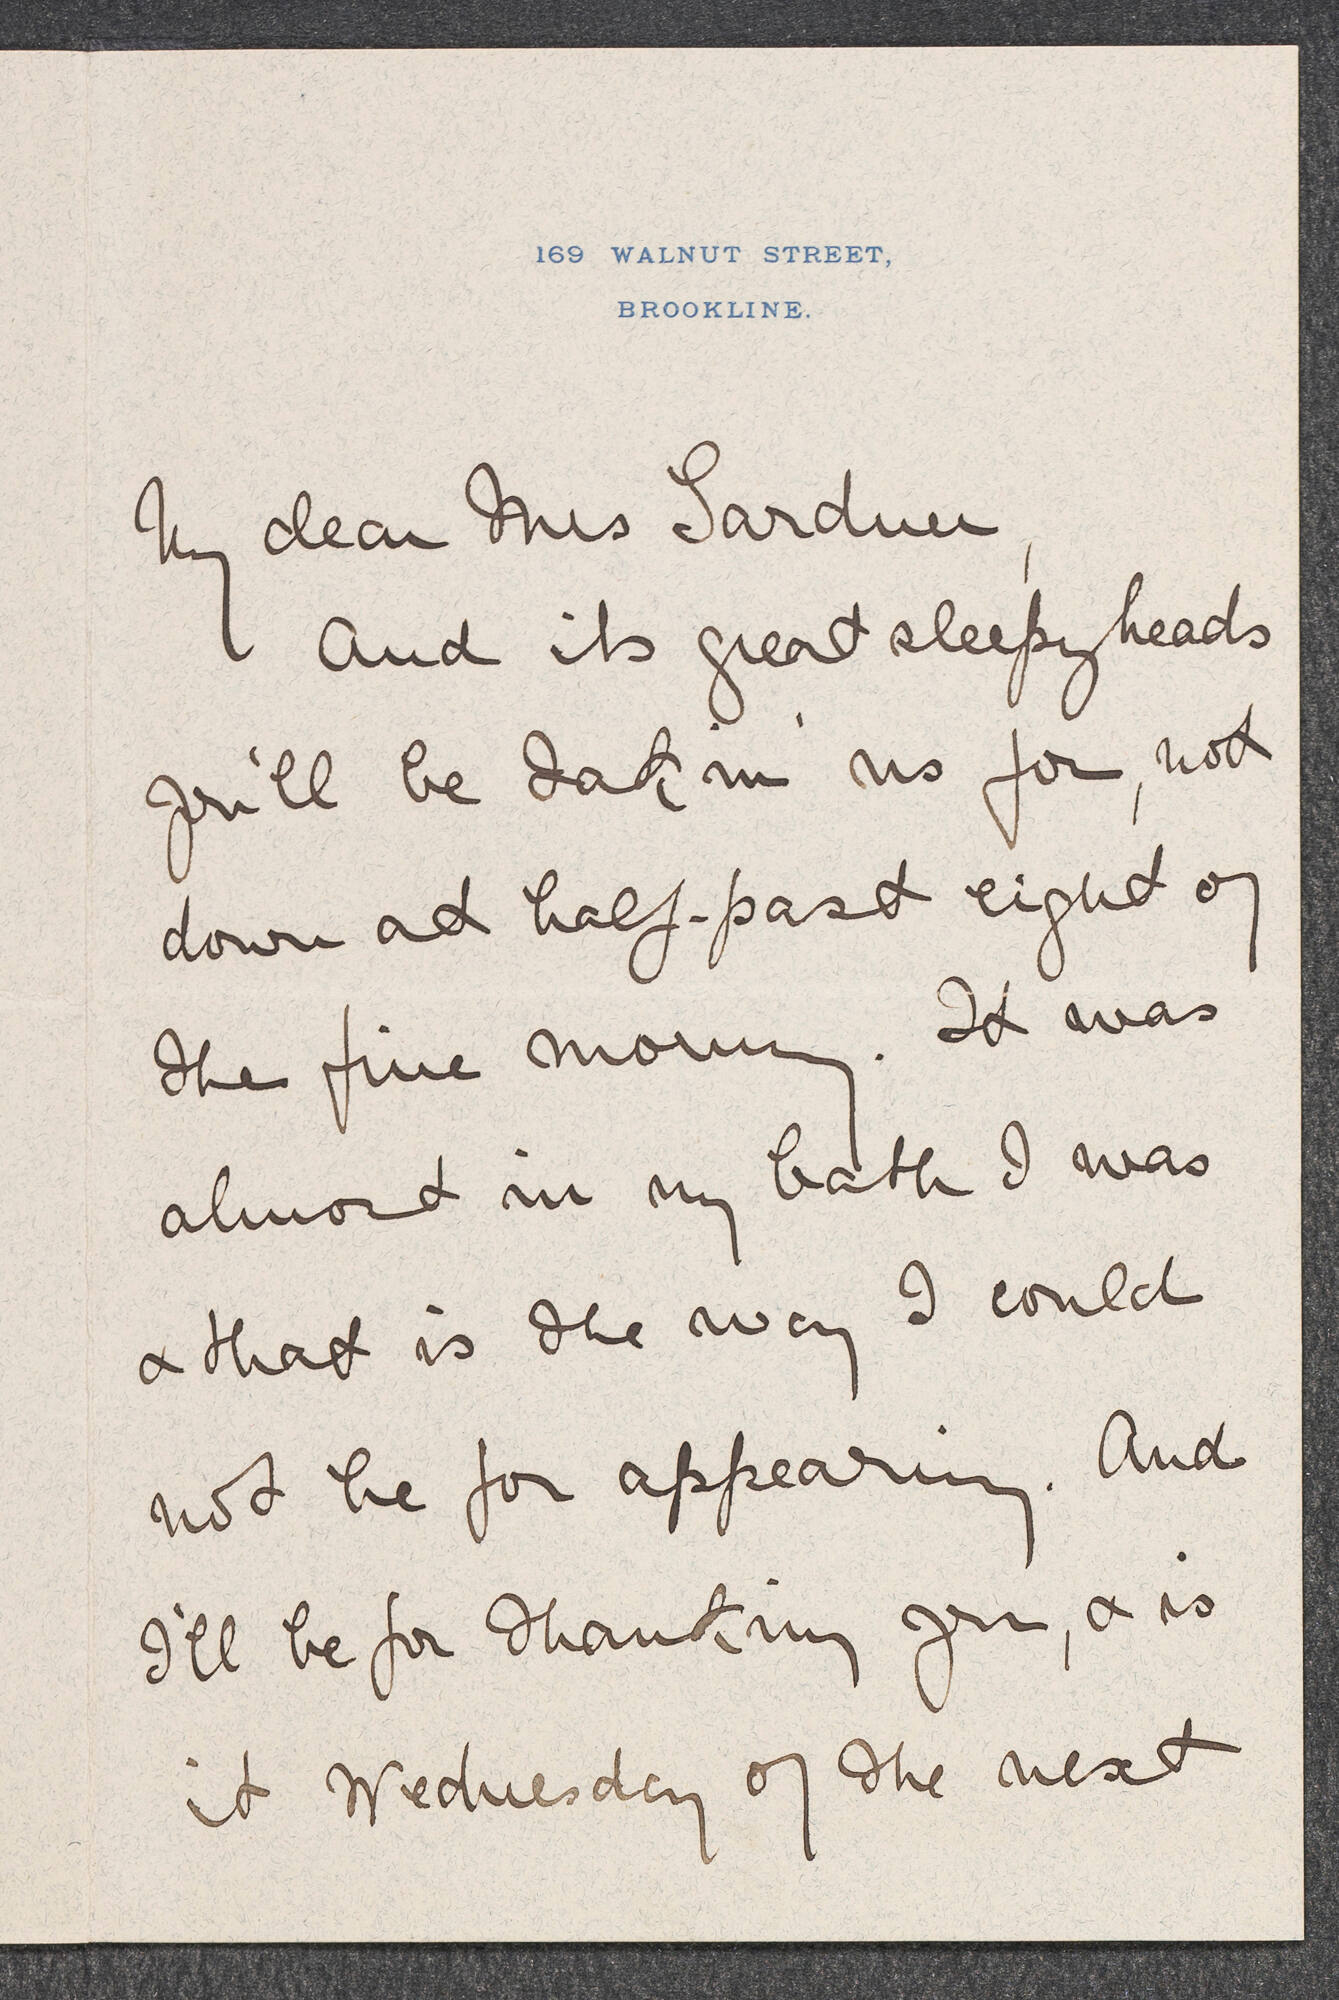 169 WALNUT STREET,
BROOKLINE.
My dear Mrs Gardner,
And its great sleepy heads
you'll be takin' us for, not
down at half-past eight of
the fine morning. It was
almost in my bath I was
& that is the way I could
not be for appearing. And
I'll be for thanking you, & is
it Wednesday of the next